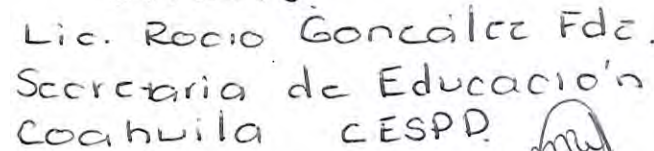 Lic. Rocio González Fdz.
Secretaria de Educación
Coahuila CESPD